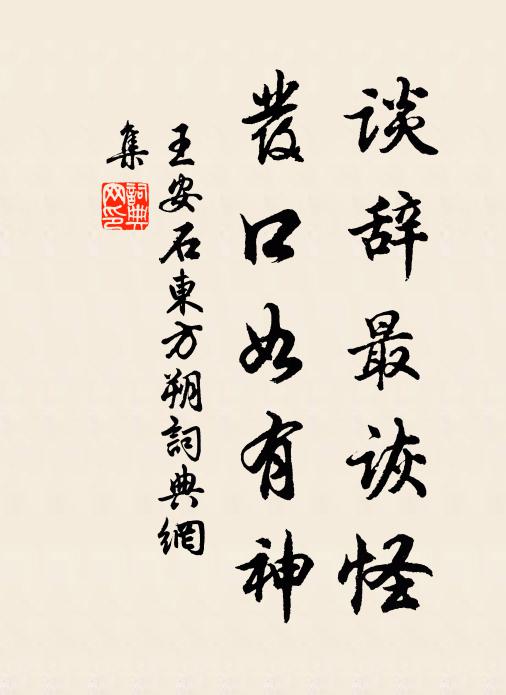 谈辞最诙怪
發口如有神
王安石東方朔詞典網
集
詞典
网印